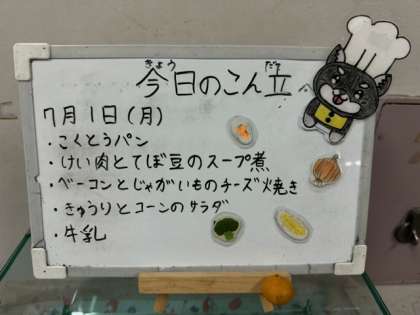 今日のこん立
きょう だて
7月1日(月)
・こくとうパン
・けい肉とてぼ豆のスープ煮
・ベーコンとじゃがいものチーズ焼き
・きゅうりとコーンのサラダ
・牛乳